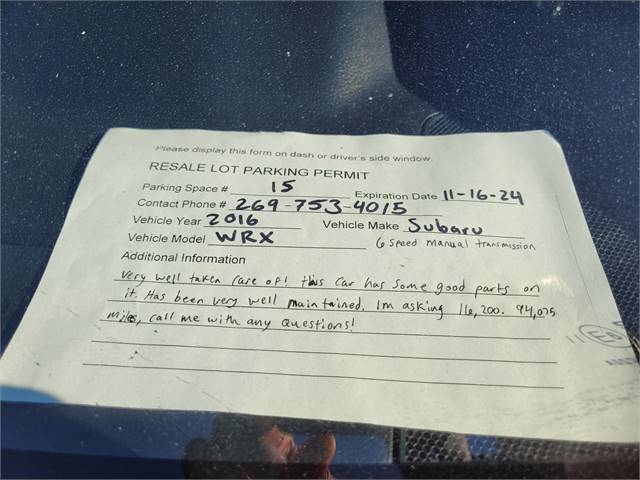 Please display this form on dash or driver's side window.
RESALE LOT PARKING PERMIT
Parking Space # 15 Expiration Date 11-16-24
Contact Phone # 269-753-4015
Vehicle Year 2016 Vehicle Make Subaru
Vehicle Model WRX 6 speed manual transmission
Additional Information
Very well taken care of! this car has some good parts on
it. Has been very well maintained. Im asking 16,200. 94,075
miles, call me with any questions!